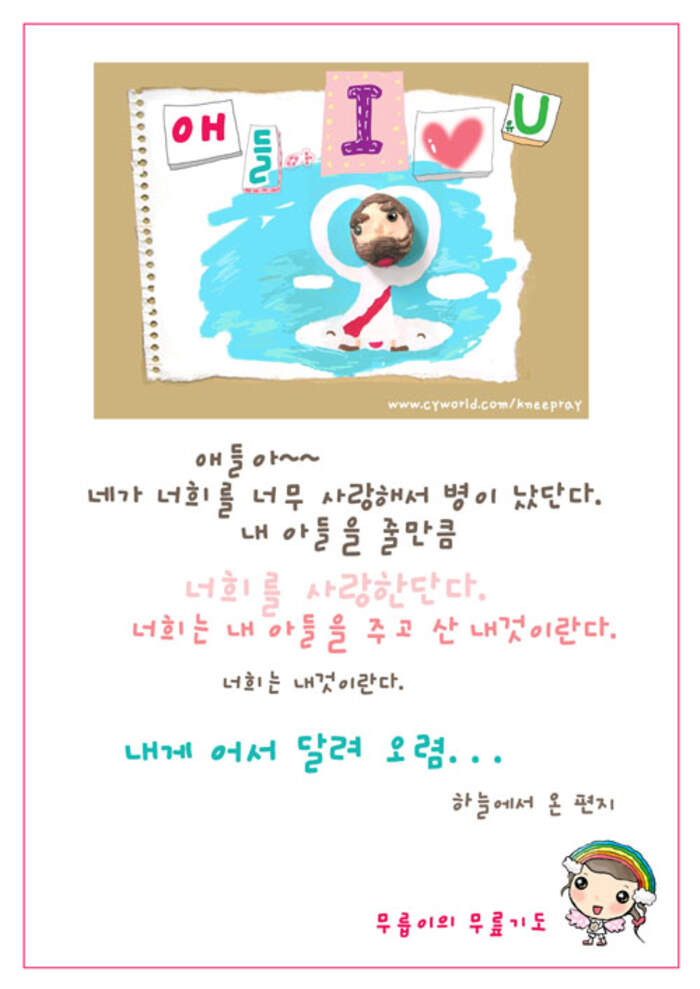 애들아 I ♥ U
유
www.cyworld.com/kneepray
애들아~~
네가 너희를 너무 사랑해서 병이 났단다.
내 아들을 줄만큼
너희를 사랑한단다.
너희는 내 아들을 주고 산 내것이란다.
너희는 내것이란다.
내게 어서 달려 오렴...
하늘에서 온 편지
무릎이의 무릎기도